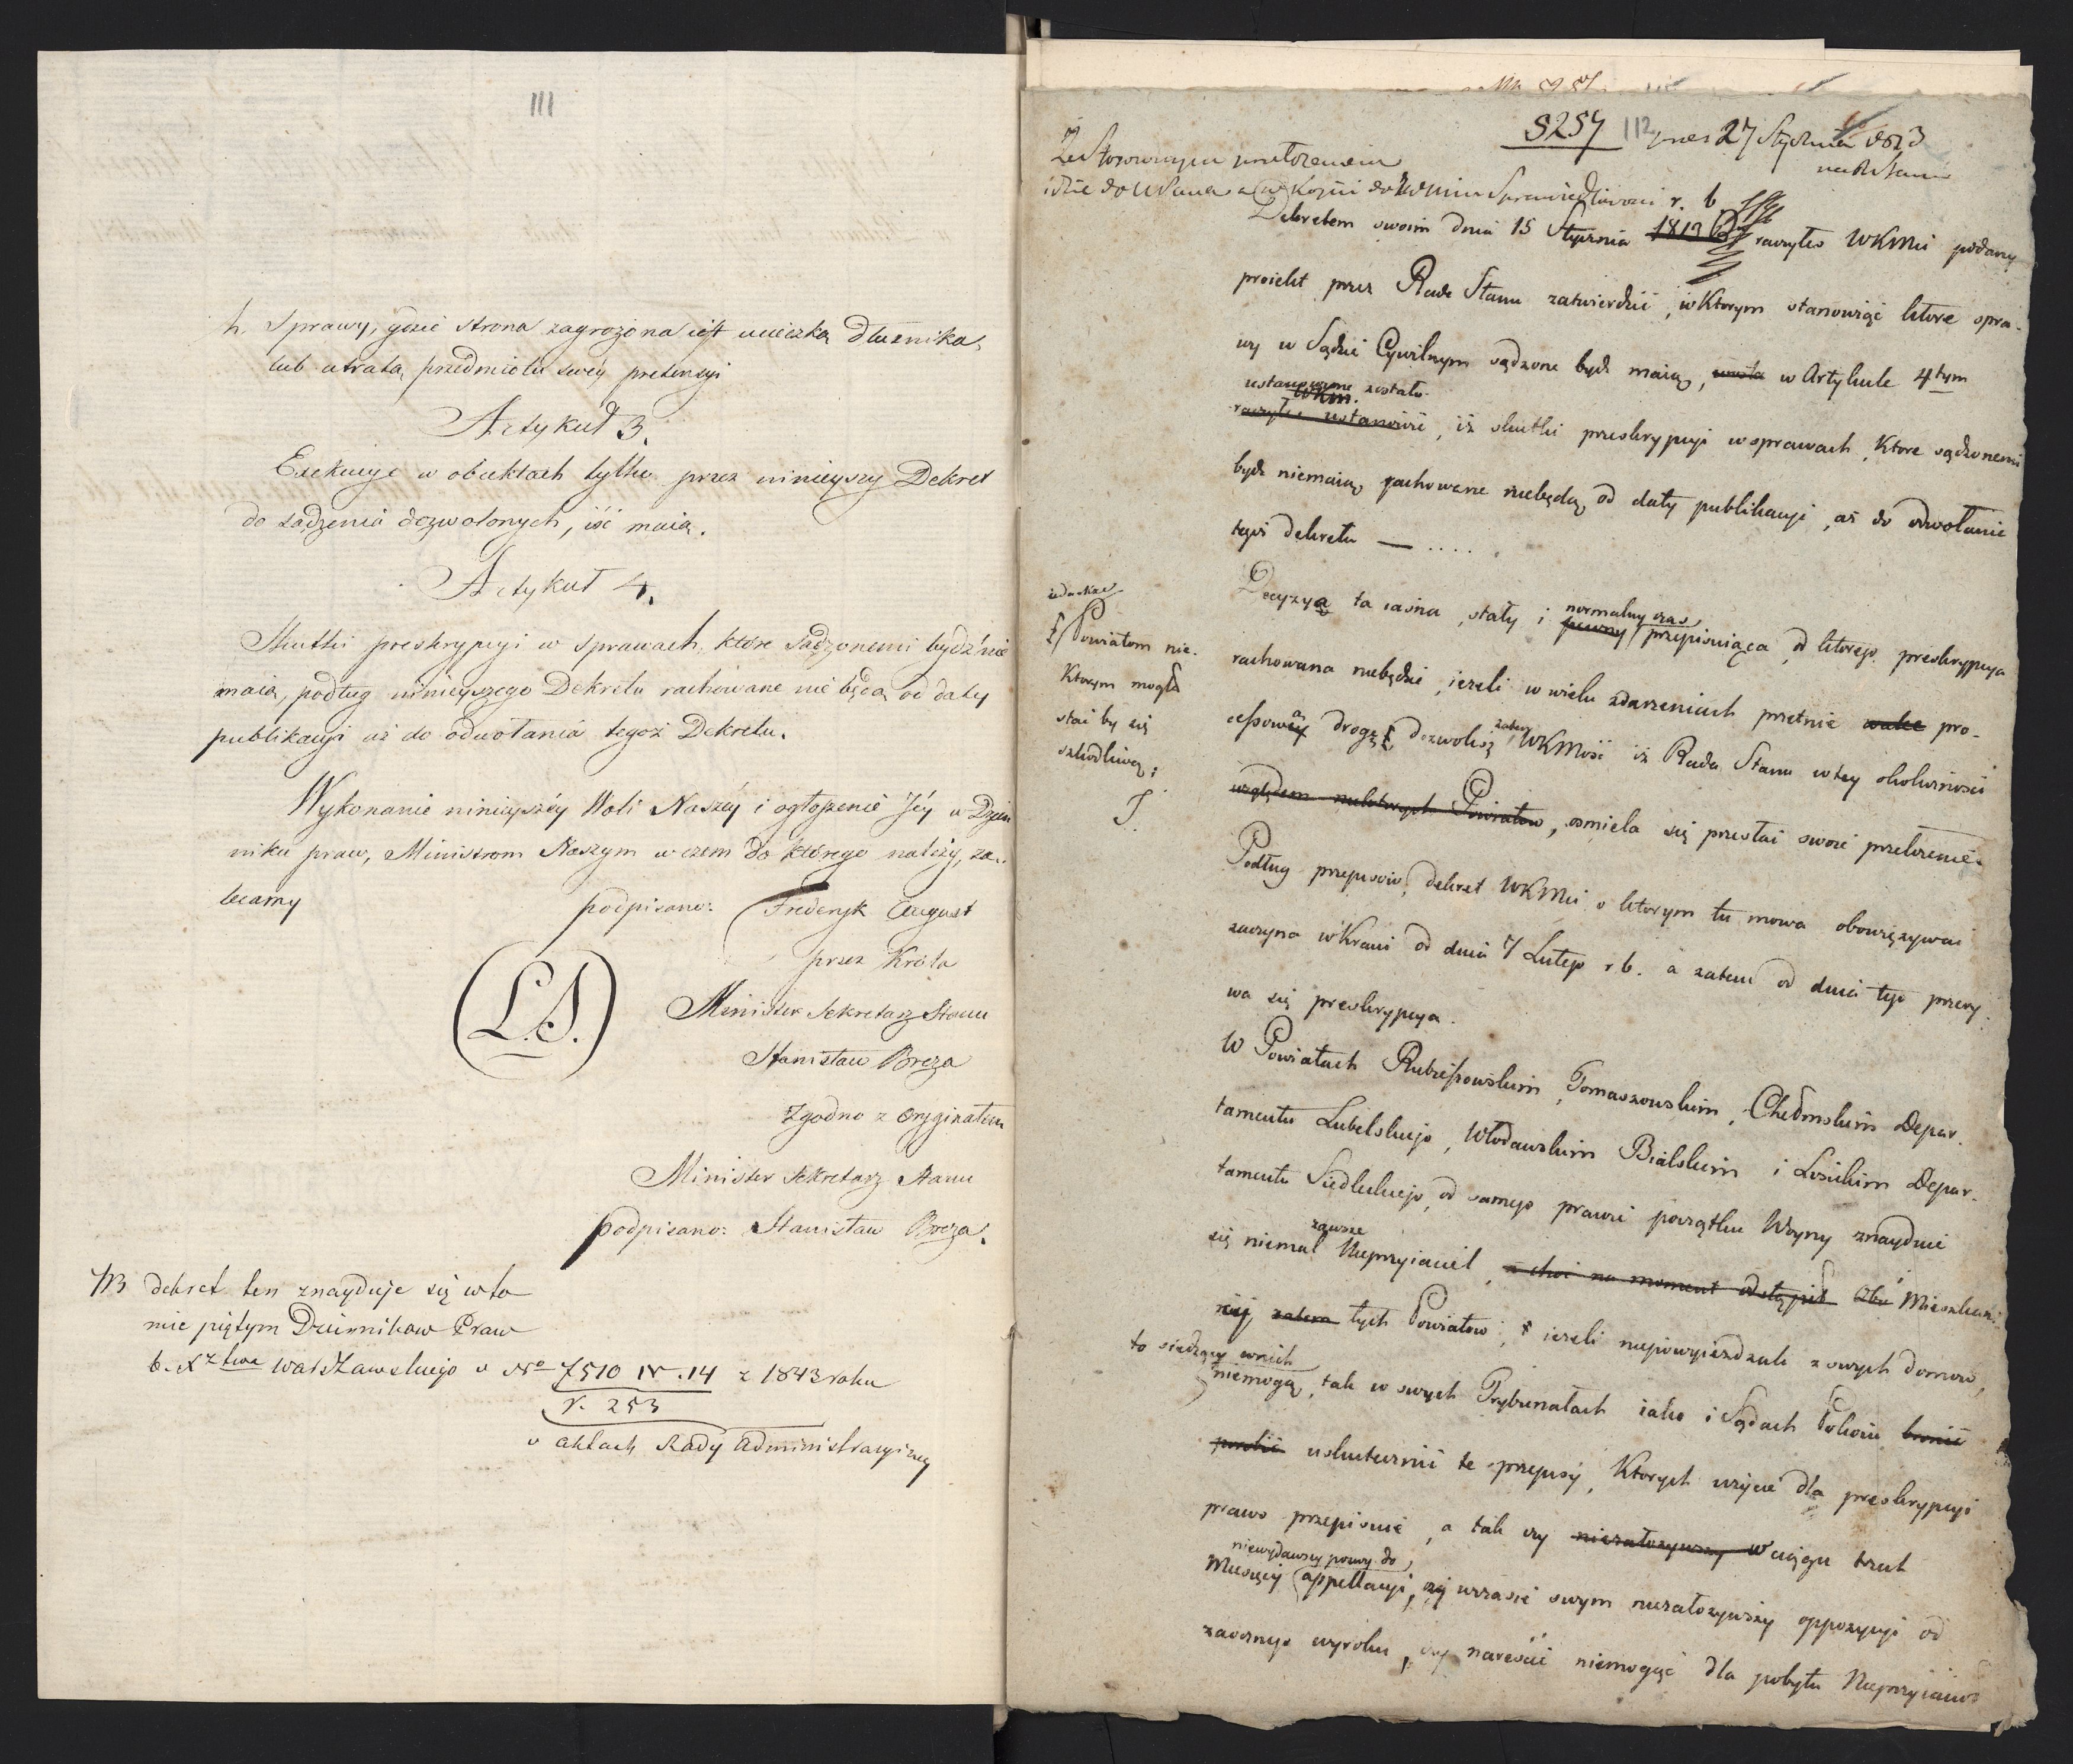 111
h. Sprawy, gdzie strona zagrożona iest ucieczką dłużnika,
lub utratą przedmiotu swéy pretensyi
Artykuł 3.
Exekucye w obiektach tylko przez ninieyszy Dekret
do sądzenia dozwolonych, iść maią.
Artykuł 4.
Skutki preskrypcyi w sprawach, które sądzonemi bydź nie
maią, podług ninieyszego Dekretu rachowane nie będą od daty
publikacyi aż do odwołania tegoż Dekretu.
Wykonanie ninieyszéy Woli Naszéy i ogłoszenie Jéy w Dzien
niku praw, Ministrom Naszym w czem do którego należy, za-
lecamy
podpisano: Frederyk August
przez Króla
Minister Sekretarz Stanu
Stanisław Breza
(L.S.)
Zgodno z Oryginałem
Minister Sekretarz Stanu
podpisano: Stanisław Breza.
NB dekret ten znayduje się w to
mie piątym Dzienników Praw
b. Xztwa Warszawskiego v No 7510 N. 14 z 1813 roku
r. 253
v aktach Rady Administracyiney
5257 112 27 Stycznia 1813
r. b.
Dekretem swoim dnia 15 Stycznia 1813 raczyłeś WKMći podany
proiekt przez Radę Stanu zatwierdzić, w którym stanowiąc które spra-
wy w Sądzie Cywilnym sądzone bydź maią, w Artykule 4tym
ustanowione zostało
WKM.
raczyłeś ustanowić, iż skutki preskrypcyi w sprawach, które sądzonemi
bydź niemaią rachowane niebędą od daty publikacyi, aż do odwołanie
tegoż dekretu — .....
Decyzya ta iasna, stały i pewny przepisuiąca, od którego preskrypcya
normalny czas
rachowana niebędzie, ieżeli w wielu zdarzeniach przetnie pro-
cessową drogę, dozwolisz zatem WKMość iż Rada Stanu w tey okoliczności
jednakże
Powiatom nie-
którym mogła
stać by się
szkodliwą;
względem niektorych Powiatow, osmiela się przesłać swoie przełożenie.
Podług przepisow, dekret WKMći o ktorym tu mowa obowiązywać
zaczyna w Kraiu od dnia 7 Lutego r. b. a zatem od dnia tego przery-
wa się preskrypcya.
W Powiatach Rubieszowskim, Tomaszowskim, Chełmskim Depar-
tamentu Lubelskiego, Włodawskim Bialskim i Łosickim Depar-
tamentu Siedleckiego, od samego prawie początku Woyny znayduie
się niemal zawsze Nieprzyiaciel, a choć na moment odstąpił Mieszkań-
cy zatem tych Powiatow, ieżeli niepowyieżdżali z swych domow,
to siedzący w nich
niemogą, tak w swych Trybunałach iako i Sądach Pokoiu bronić
uskutecznić te przepisy, których użycie dla preskrypcyi
prawo przepisuie, a tak czy niezałożywszy w ciągu trzech
niewydawszy pozwy do
Miesięcy appellacyi, czy w czasie swym niezałożywszy oppozycyi od
zaocznego wyroku, czy nareście niemogąc dla pobytu Nieprzyiaciół